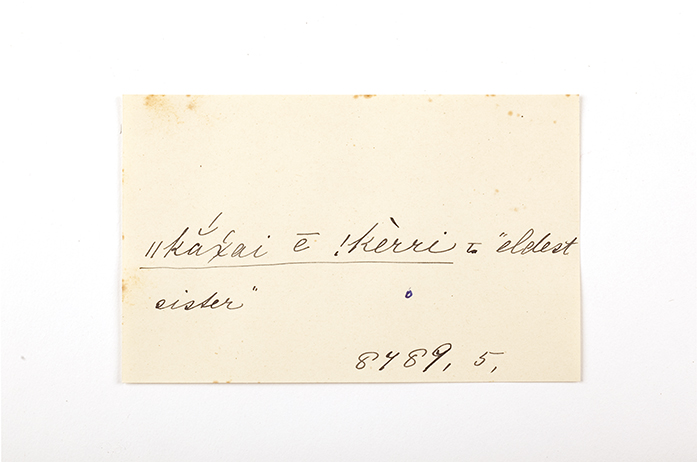 ǁkắχ́ai ē ǃkèrri = "eldest
sister"
8489, 5,